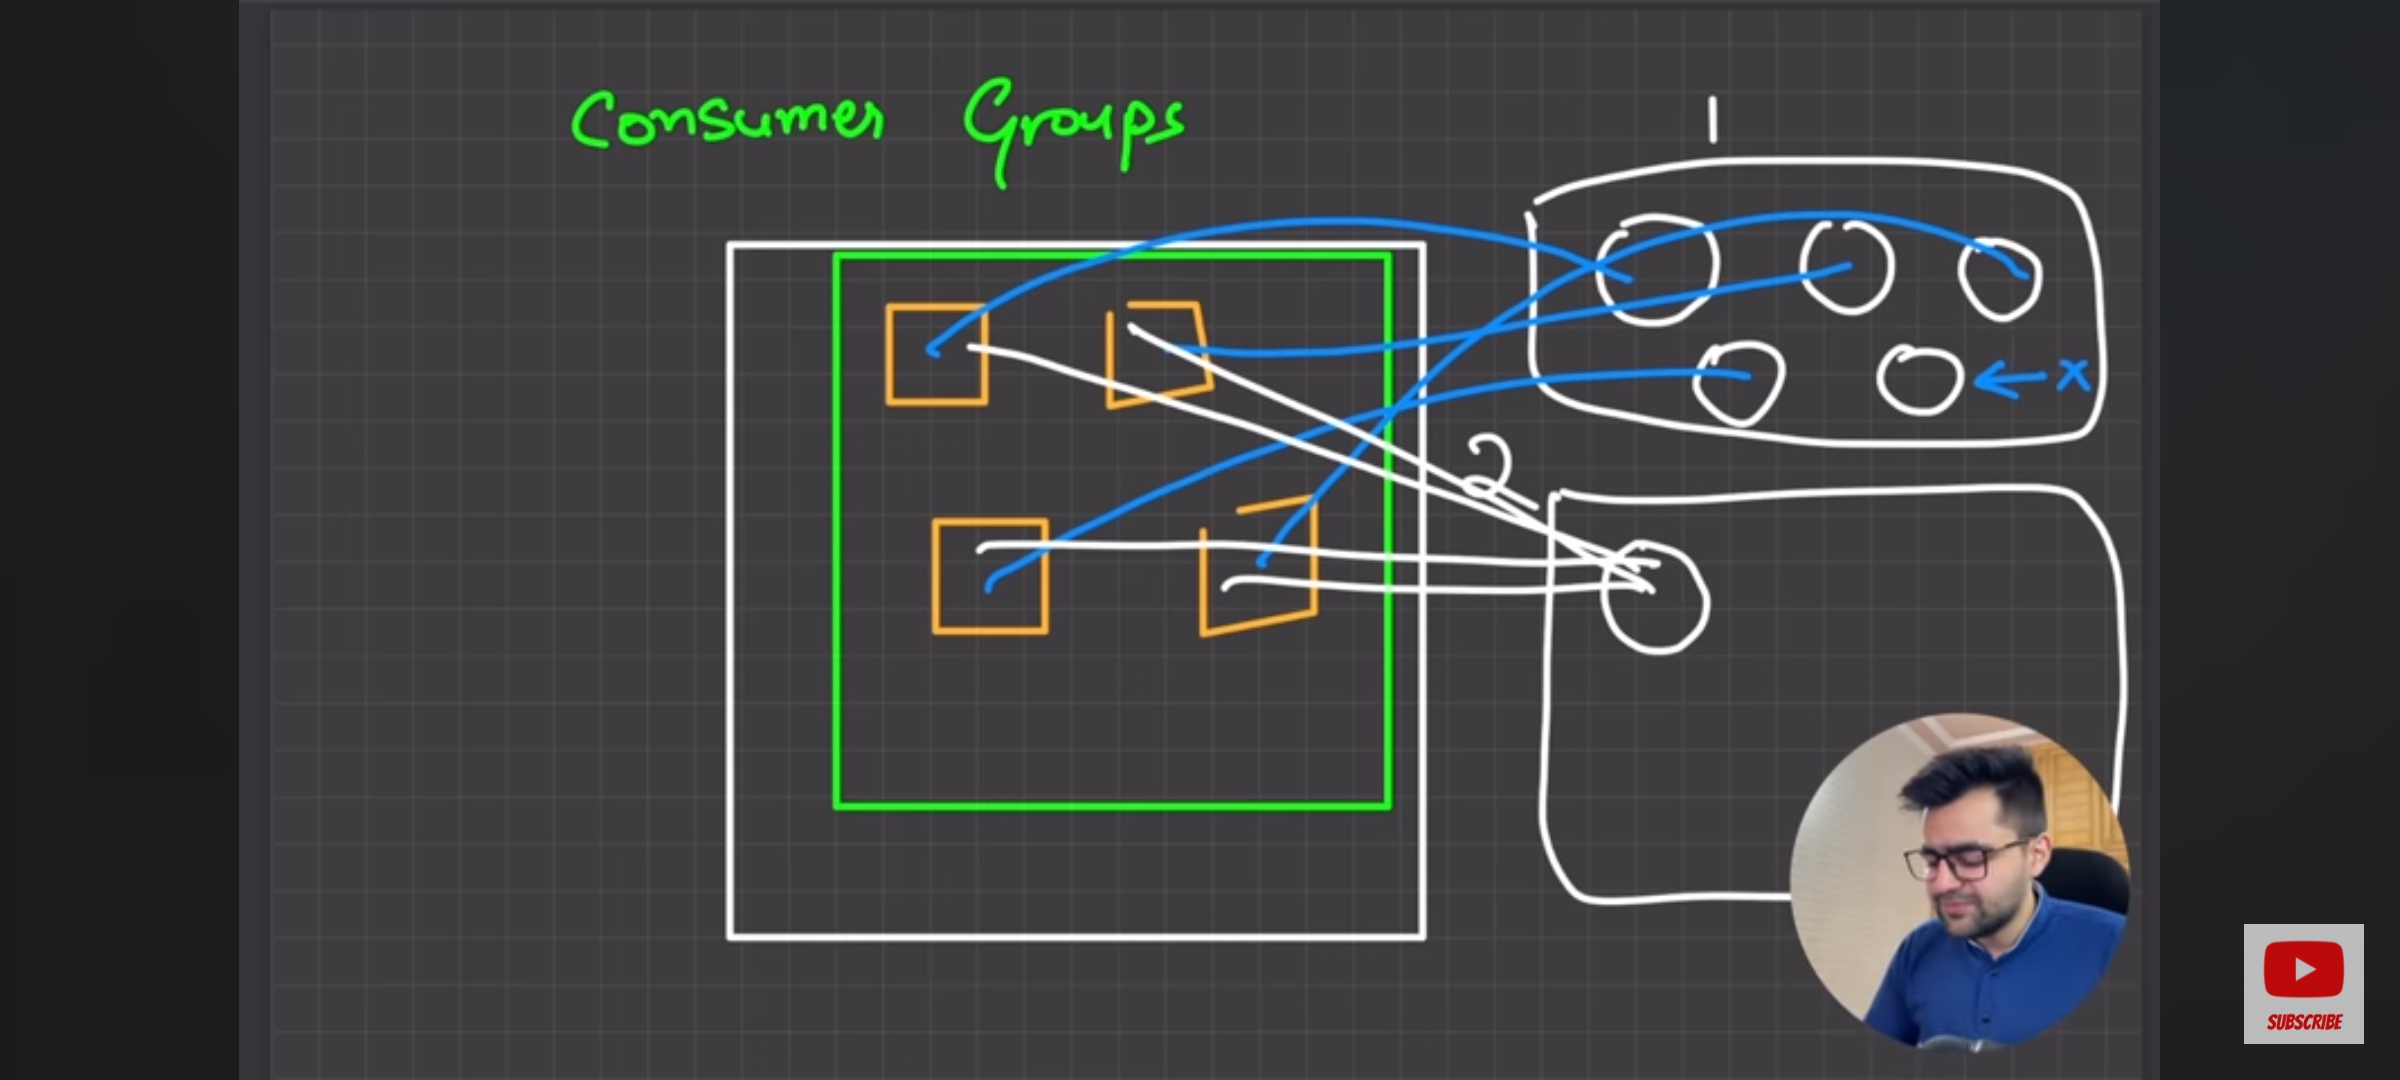 Consumer Groups
1
x
2
SUBSCRIBE